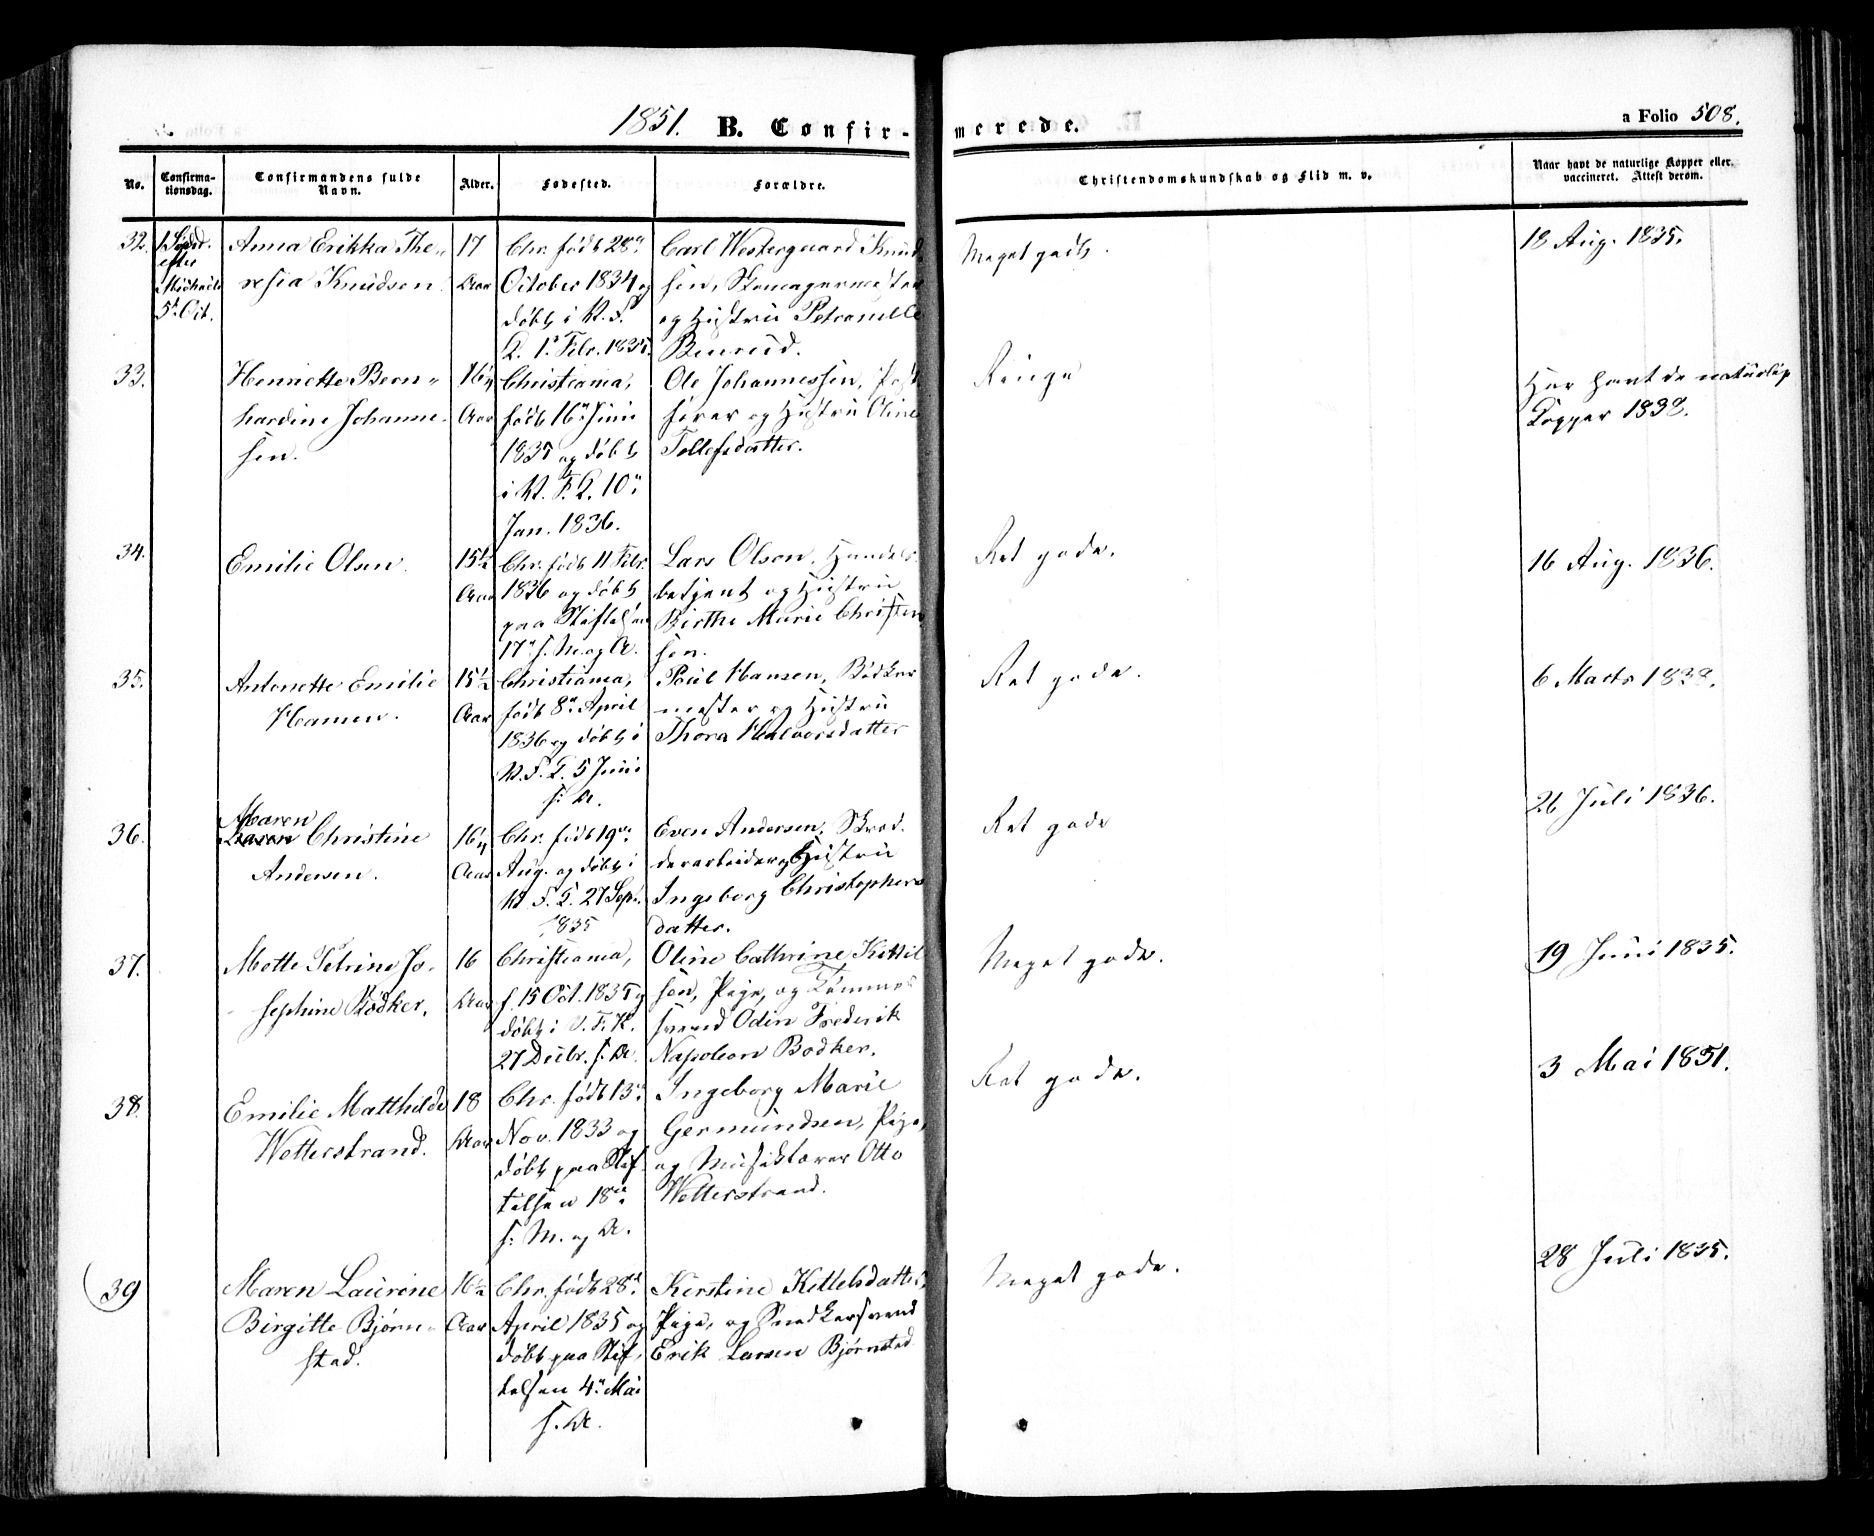 1851. B. Confir- merede. a Folio 508.
No.
Confirma-
tionsdag.
Confirmandens fulde
Navn.
Alder.
Fødested.
Forældre.
Christendomskundskab og Flid m. v.
Naar havt de naturlige Kopper eller
vaccineret. Attest derom.
32.
efter
Michaelis
5t Oct.
Anna Erikka The-
resia Knudsen
17
Aar
Chr. født 28de
October 1834 og
døbt i V. F.
K. 1ste Febr. 1835.
Carl Westergaard Knud
sen, Skomagermester
og Hustru Petronelle
Meget godt.
18 Aug. 1835.
33.
Henriette Bern-
hardine Johanne-
sen.
16¼
Aar
Christiania,
født 16de Juni
1835 og døbt
i V. F. K. 10de
Jan. 1836.
Ole Johannessen,
og Hustru Oline
Tollefsdatter.
Ringe
Har havt de naturlige
Kopper 1838.
34.
Emilie Olsen.
15½
Aar
Chr. født 11 Febr.
1836 og døbt
paa Stiftelsen
17de s. M. og A.
Lars Olson, Handels
betjent og Hustru
Birthe Marie Christen
sen.
Ret gode.
16 Aug. 1836.
35.
Antonette Emilie
Hansen.
15½
Aar
Christiania,
født 8de April
1836 og døbt i
V. F. K. 5 Juni
s. A.
Poul Hansen, Bødker
mester og Hustru
Thora Halvorsdatter
Ret gode.
6 Marts 1838.
36.
Maren
Karen Christine
Andersen.
16¼
Aar
Chr. født 19de
Aug. og døbt i
V. F. K. 27 Sept.
1835
Even Andersen, Skræd-
derarbeider og Hustru
Ingeborg Christophers
datter.
Ret gode
26 Juli 1836.
37.
Mette Petrine Jo-
sephine Bödker.
16
Aar
Christiania,
f. 15 Oct. 1835 og
døbt i V. F. K.
27 Decbr. s. A.
Oline Cathrine Kittil
sen, Pige, og Tømmer
svend Odin Frederik
Napoleon Bødker.
Meget gode.
19 Juni 1835.
38.
Emilie Matthilde
Wetterstrand.
18
Aar
Chr. født 13de
Nov. 1833 og
døbt paa Stif
telsen 18de
s. M. og A.
Ingeborg Marie
Germundsen, Pige,
og Musiklærer Otto
Wetterstrand.
Ret gode.
3 Mai 1851.
39
Maren Laurine
Birgitte Bjørn-
stad.
16½
Aar
Chr. født 28de
April 1835 og
døbt paa Stif,
telsen 4de Mai
s. A.
Kirstine Kittelsdatter,
Pige, og Snedkersvend
Erik Larsen Bjørnstad
Meget gode.
28 Juli 1835.